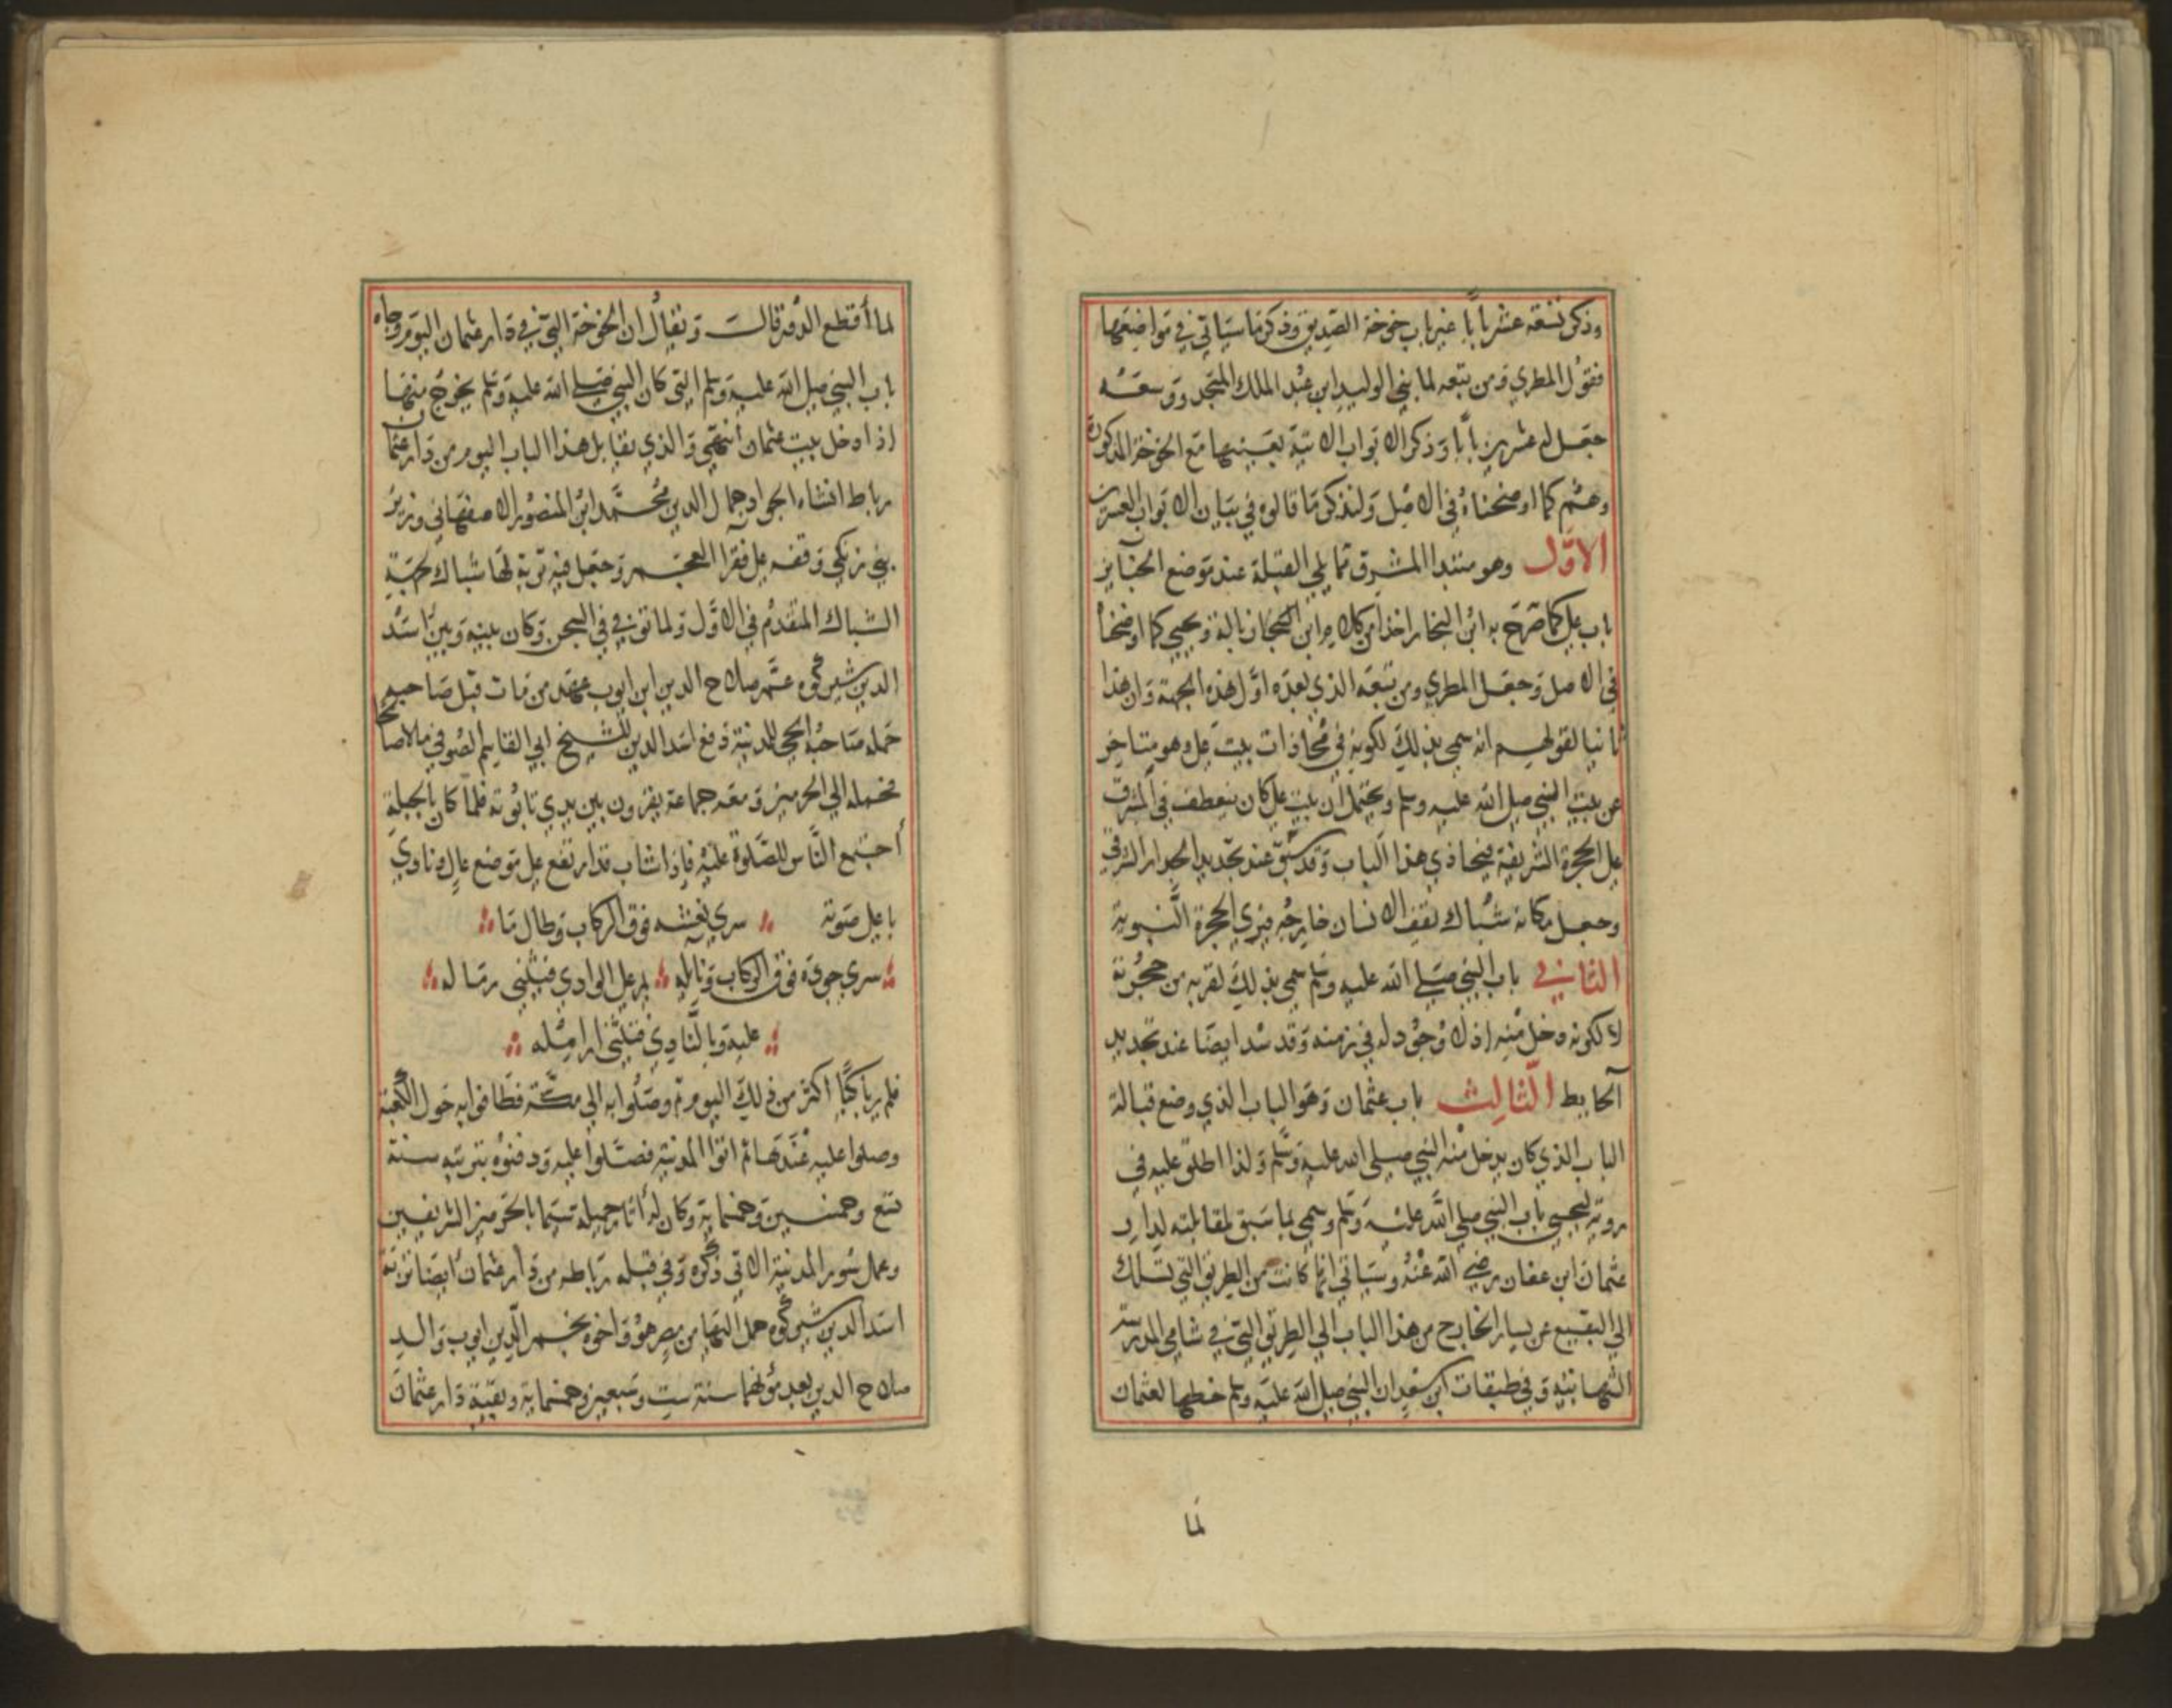 وذكر تسعة عشر بابا غير باب خوخة الصديق وذكر ما سياتي في مواضعها
فقول المطري ومن تبعه لما بنى الوليد ابن عبد الملك المسجد ووسعه
جعل له عشرين بابا وذكر الابواب الاتية بعينها مع الخوخة المذكورة
وهم كما اوضحناه في الاصل ولنذكر ما قالوه في بيان الابواب العشرين
الاول وهو مبتدا المشرق مما يلي القبلة عند موضع الجنايز
باب علي كما صرح به ابن النجار اخذا من كلام ابن زبالة ويحيى كما اوضحنا
في الاصل وجعل المطري ومن تبعه الذي بعده اول هذه الجهة وان هذا
ثانيا لقولهم انه سمي بذلك لكونه في محاذات بيت علي وهو متاخر
عن بيت النبي صلى الله عليه وسلم ويحتمل ان بيت علي كان ينعطف في المشرق
على الحجرة الشريفة فيحاذي هذا الباب وقد سبق عند تجديد الجدار الشرقي
وجعل مكانه شباك يقف الانسان خارجه فيرى الحجرة النبوية
الثاني باب النبي صلى الله عليه وسلم سمي بذلك لقربه من حجرته
لا لكونه دخل منه اذ لا وجود له في زمنه وقد سد ايضا عند تجديد
الحايط الثالث باب عثمان وهو الباب الذي وضع قبالة
الباب الذي كان يدخل منه النبي صلى الله عليه وسلم ولذا اطلق عليه في
روية ليحيى باب النبي صلى الله عليه وسلم وسمي بما سبق لمقابلته لدار
عثمان ابن عفان رضي الله عنه وسياتي انها كانت من الطريق التي تسلك
الى البقيع عن يسار الخارج من هذا الباب الى الطريق التي في شامي المدرسة
الشهابية وفي طبقات ابن سعد ان النبي صلى الله عليه وسلم خطها لعثمان
لما
لما أقطع الدور قالت ويقال ان الخوخة التي في دار عثمان اليوم وجاه
باب النبي صلى الله عليه وسلم التي كان النبي صلى الله عليه وسلم يخرج منها
اذا دخل بيت عثمان انتهى والذي يقابل هذا الباب اليوم من دار عثمان
رباط انشاه الجواد جمال الدين محمد ابن المنصور الاصفهاني وزير
بني زنكي وقفه على فقرا العجم وجعل فيه تربة لها شباك بجهة
الشباك المتقدم في الاول ولما توفي في السجن وكان بينه وبين اسد
الدين شيركوه عم صلاح الدين ابن ايوب عهد من مات قبل صاحبه
حمله صاحبه الحي للمدينة دفع اسد الدين للشيخ ابي القاسم الصوفي مالا صالحا
فحمله الى الحرمين ومعه جماعة يقرون بين يدي تابوته فلما كان بالحلة
أجتمع الناس للصلوة عليه فاذا شاب قد ارتفع على موضع عال ونادى
باعلى صوته سرى نعشه فوق الركاب وطال ما
سرى جوده فوق الركاب ونايله يمر على الوادي فيثني رماله
عليه وبالنادي فتثني ارامله
فلم ير باكيا اكثر من ذلك اليوم ثم وصلوا به الى مكة فطافوا به حول الكعبة
وصلوا عليه عندها ثم اتوا المدينة فصلوا عليه ودفنوه بتربته سنة
تسع وخمسين وخمماية وكان له أثار جميلة سيما بالحرمين الشريفين
وعمل سور المدينة الاتي ذكره وفي قبله رباطه من دار عثمان ايضا تربة
اسد الدين شيركوه حمل اليها من مصر هو واخوه نجم الدين ايوب والد
صلاح الدين بعد موتهما سنة ست وسبعين وخمماية وبقية دار عثمان